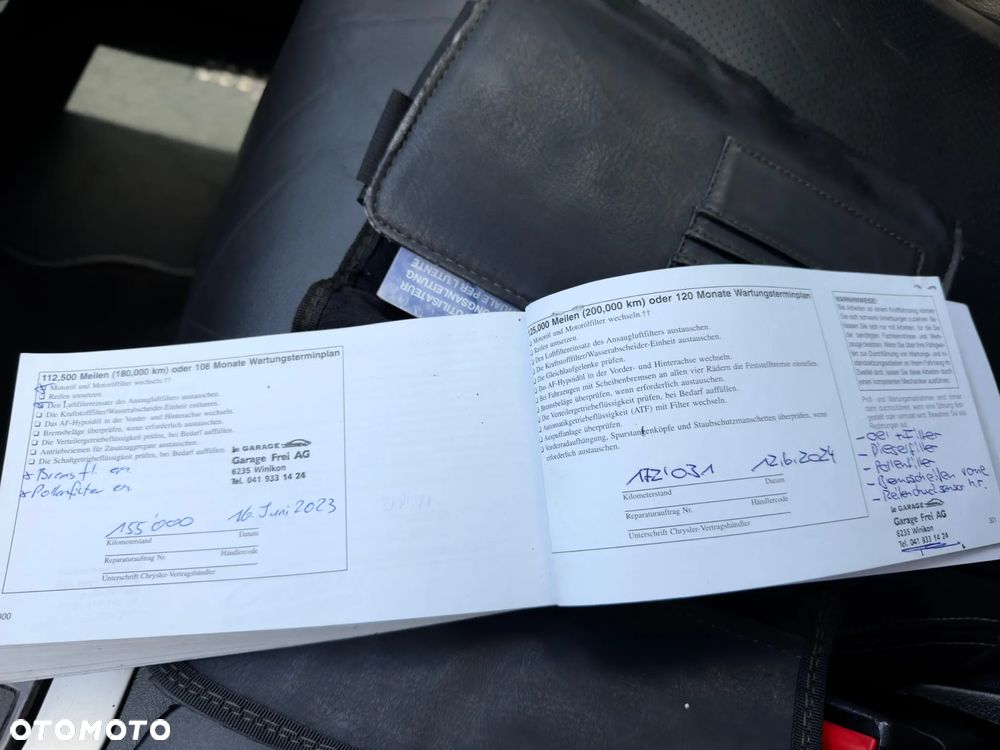 TILISATEUR
NGSANLEITUNG
ALE PER L'UTENTE
112,500 Meilen (180,000 km) oder 108 Monate Wartungsterminplan
Motoröl und Motorölfilter wechseln.††
Reifen umsetzen.
Den Luftfiltereinsatz des Ansaugluftfilters austauschen.
❏ Die Kraftstofffilter/Wasserabscheider-Einheit entleeren.
❏ Das AF-Hypoidöl in der Vorder- und Hinterachse wechseln.
❏ Bremsbeläge überprüfen, wenn erforderlich austauschen.
❏ Die Verteilergetriebeflüssigkeit prüfen, bei Bedarf auffüllen.
❏ Antriebsriemen für Zusatzaggregate austauschen.
❏ Die Schaltgetriebeflüssigkeit prüfen, bei Bedarf auffüllen.
Bremsfl. er.
Pollenfilter er
le GARAGE
Garage Frei AG
6235 Winikon
Tel. 041 933 14 24
155'000 16. Juni 2023
Kilometerstand Datum
Reparaturauftrag Nr. Händlercode
Unterschrift Chrysler-Vertragshändler
300
25,000 Meilen (200,000 km) oder 120 Monate Wartungsterminplan
❏ Motoröl und Motorölfilter wechseln.††
❏ Reifen umsetzen.
❏ Den Luftfiltereinsatz des Ansaugluftfilters austauschen.
❏ Die Kraftstofffilter/Wasserabscheider-Einheit austauschen.
❏ Die Gleichlaufgelenke prüfen.
❏ Das AF-Hypoidöl in der Vorder- und Hinterachse wechseln.
❏ Bei Fahrzeugen mit Scheibenbremsen an allen vier Rädern die Feststellbremse einstellen.
❏ Bremsbeläge überprüfen, wenn erforderlich austauschen.
❏ Die Verteilergetriebeflüssigkeit prüfen, bei Bedarf auffüllen.
❏ Automatikgetriebeflüssigkeit (ATF) mit Filter wechseln.
❏ Auspuffanlage überprüfen.
❏ Vorderradaufhängung, Spurstangenköpfe und Staubschutzmanschetten überprüfen, wenn
erforderlich austauschen.
172'031 12.6.2024
Kilometerstand Datum
Reparaturauftrag Nr. Händlercode
Unterschrift Chrysler-Vertragshändler
WARNHINWEISE!
Bei Arbeiten an einem Kraftfahrzeug können
Sie sich schwere Verletzungen zuziehen.
fassen Sie sich nur mit Arbeiten, für die Sie
die benötigten Fachkenntnisse und Werk-
zeuge besitzen. Wenn Sie über Ihre Fähigkei-
ten zur Durchführung von Wartungs- und
standsetzungsarbeiten an Ihrem Fahrzeug im
Zweifel sind, lassen Sie diese Arbeiten durch
einen kompetenten Mechaniker ausführen.
Prüf- und Wartungsmaßnahmen sind immer
dann durchzuführen, wenn eine Störung
Rechnungen auf.
- Oel + Filter
- Dieselfilter
- Pollenfilter
- Bremsscheiben vorne
- Reifendrucksensor h.r.
le GARAGE
Garage Frei AG
6235 Winikon
Tel. 041 933 14 24
301
OTOMOTO